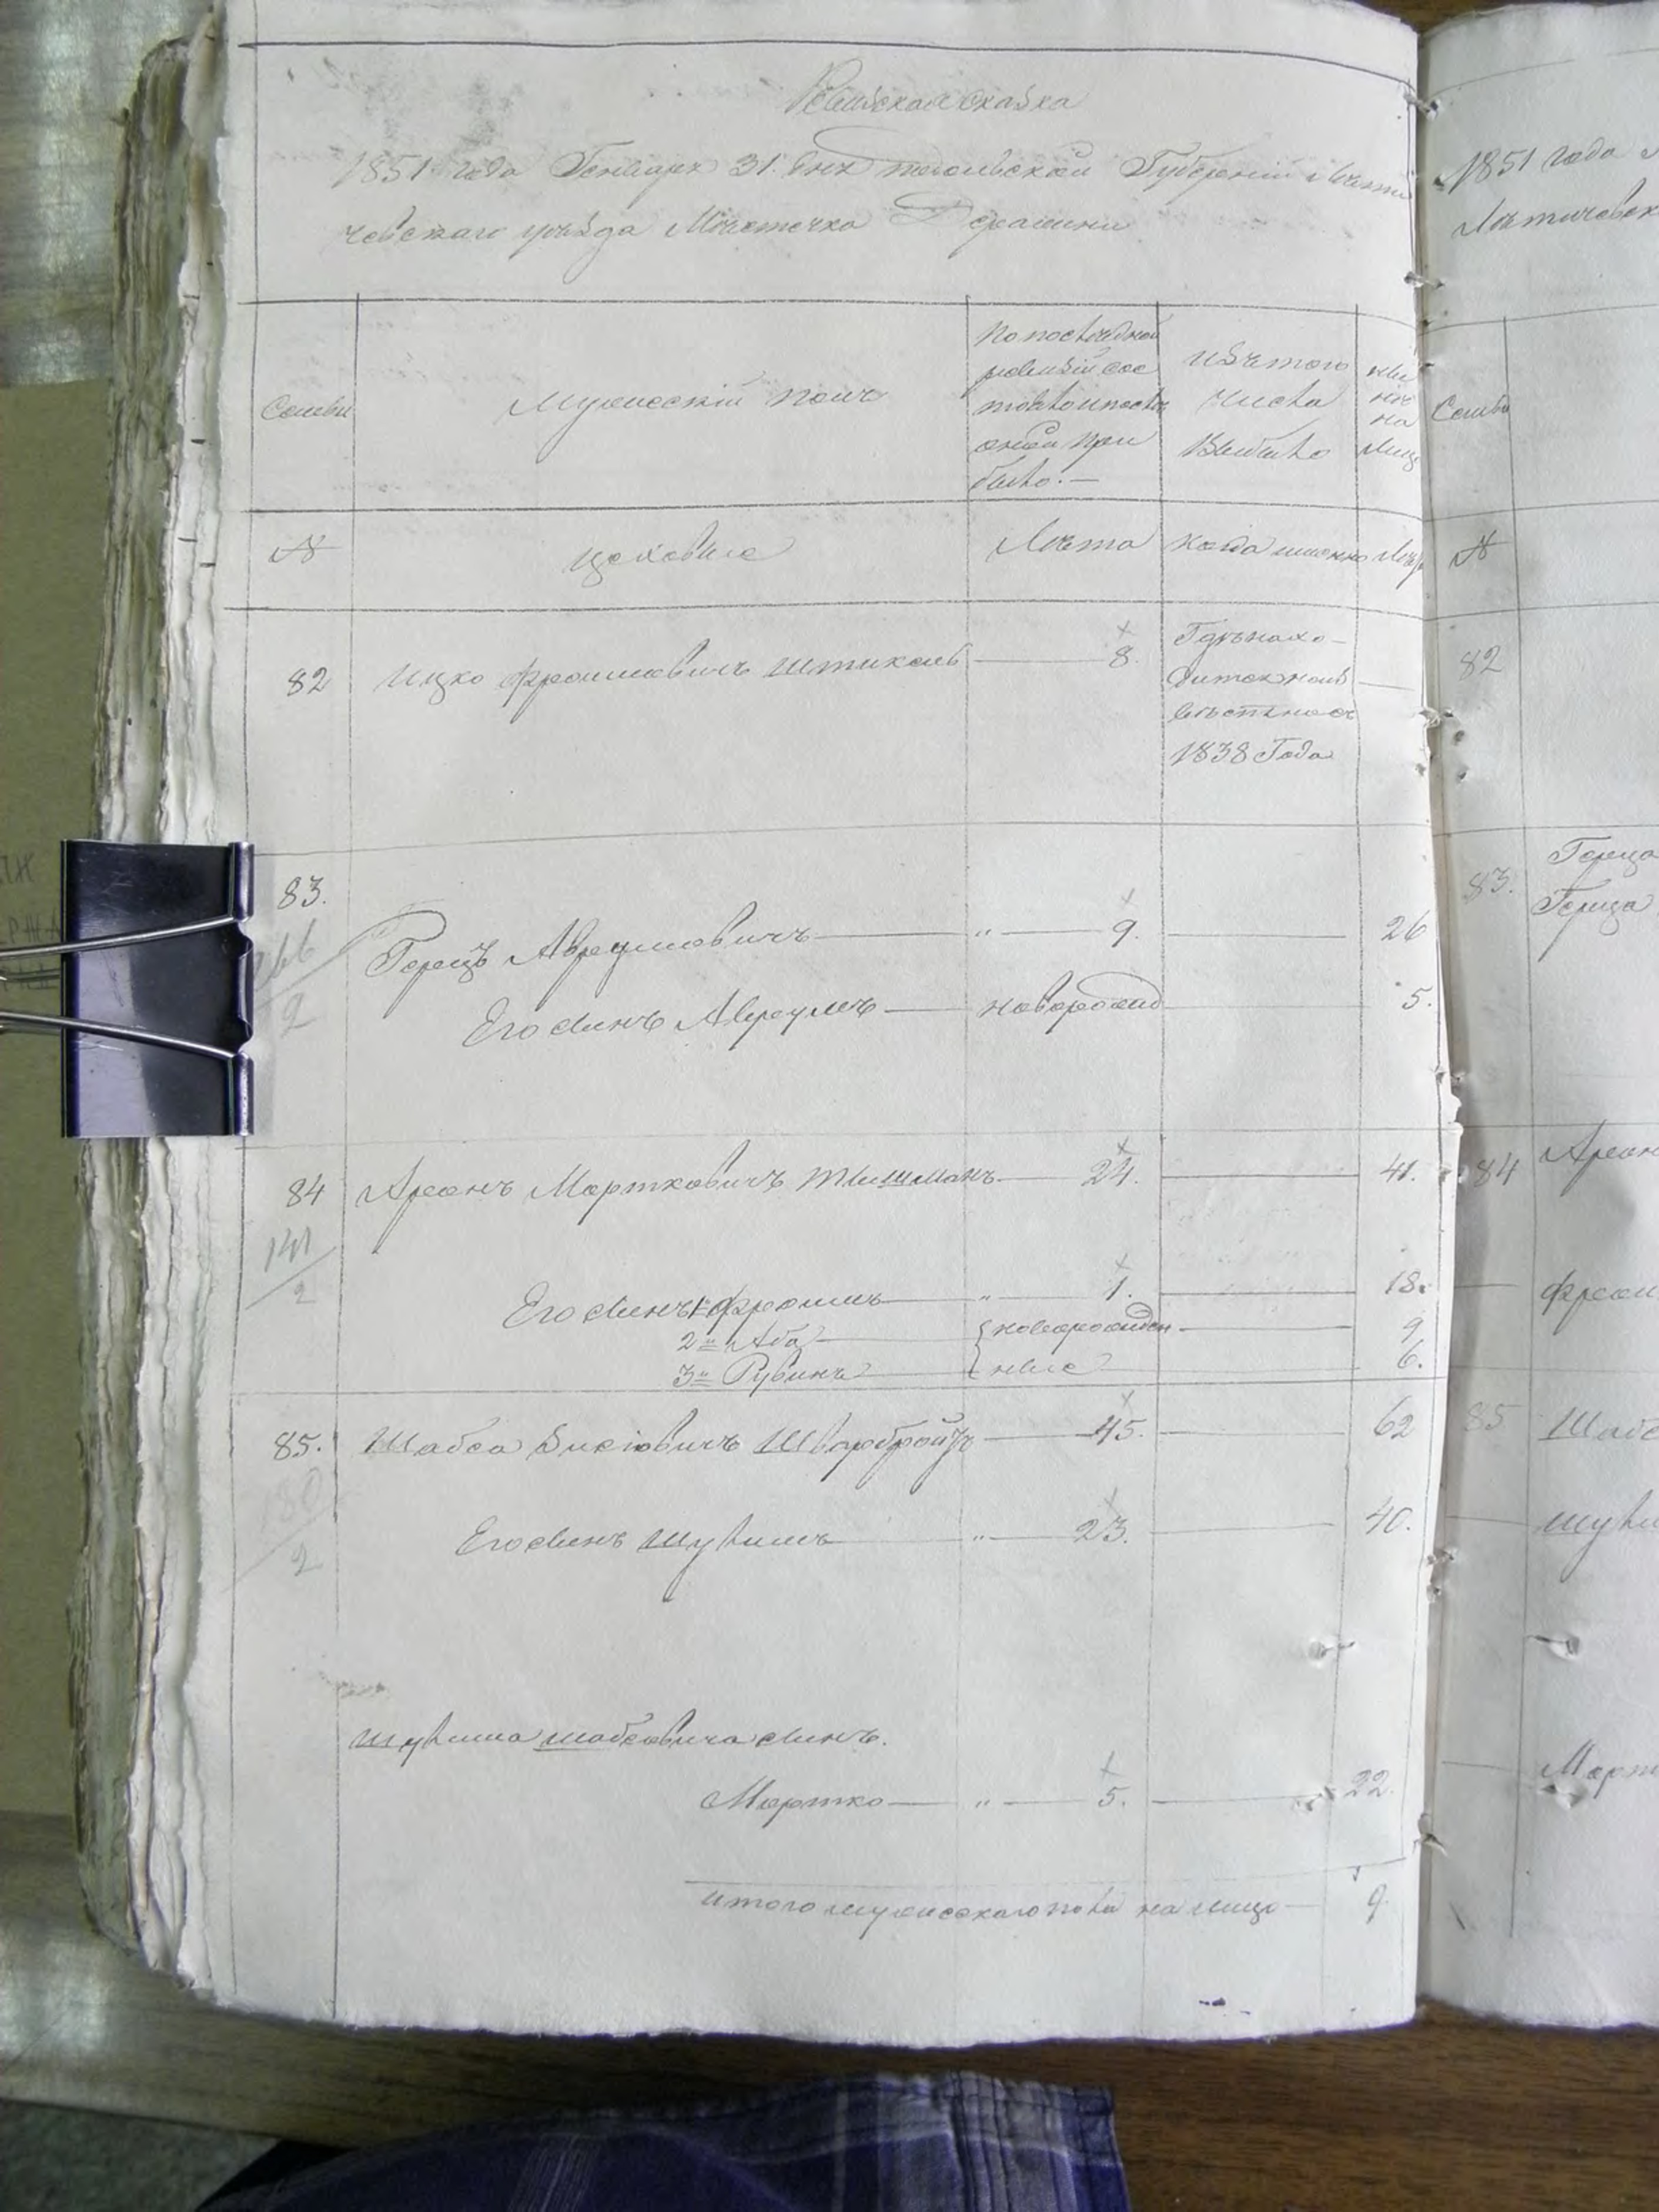 Ревизская сказка
1851 года Генваря 31. дня подольской Губернiи Летичевскаго уезда Местечка Деражни
Семьи
Мужескiй полъ
По последней ревизiи состояло и после оной прибыло.—
Изъ того числа Выбыло
ныне на лицо
№
цеховые
Лета
Когда именно
Лета
82 Ицко Фроимовичъ Штикель 8.
Где находится неизвестно съ 1838 Года
83. Герецъ Аврумовичъ „ 9. 26
2
Его сынъ Аврумъ новорожд 5.
84 Аронъ Мортковичъ Тышманъ 24. 41.
141
2
Его сынъ 1й Фроимъ „ 1. 18.
2й Аба новорожден 9
3й Рувинъ ные 6.
85. Шабса Зисiовичъ Шварбройтъ 45. 62
180
2
Его сынъ Шулимъ „ 23. 40.
Шулима Шабсовича сынъ.
Мортко „ 5. 22.
итого мужескаго пола на лицо 9
1851 года
Летичевск
Семьи
№
82
83. Гереца
Гереца
84 Арон
Фроим
85 Шабс
Шули
Морт